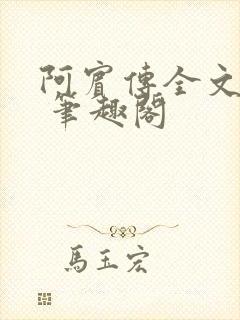 阿賓傳全文
筆趣閣
馬玉宏